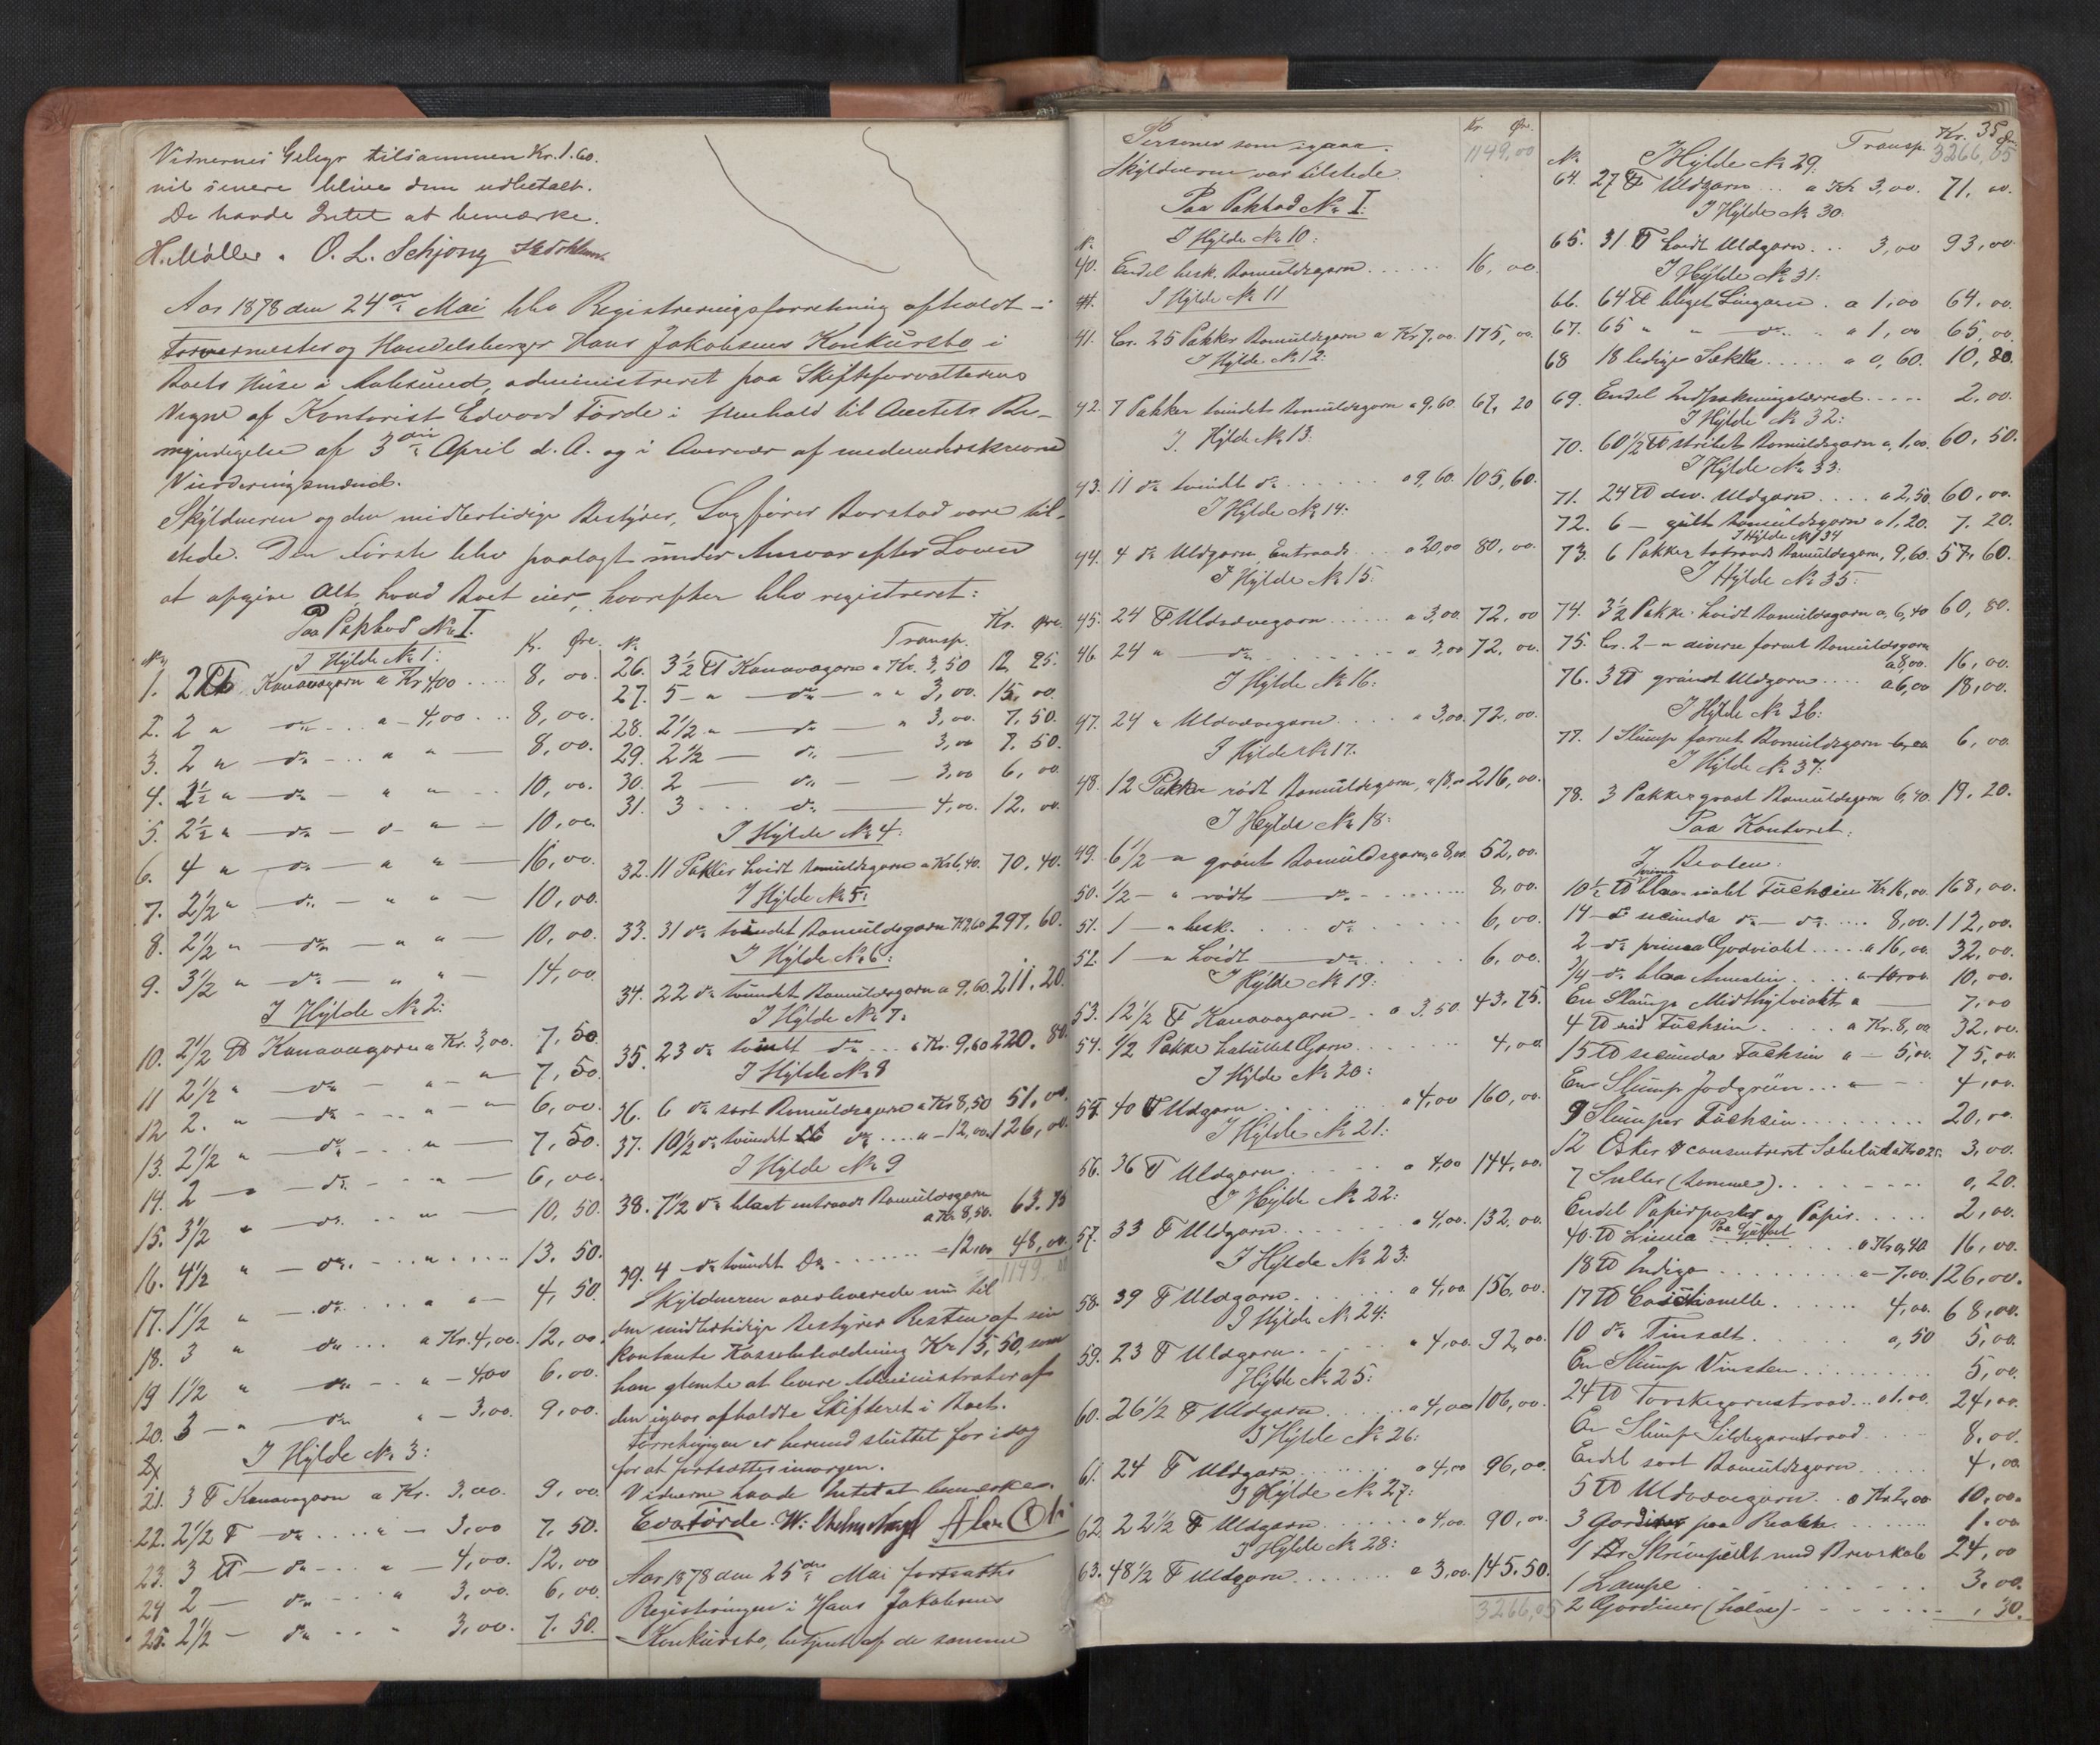 Vidnernes Gebyr tilsammen Kr. 1.60.
vil senere blive dem udbetalt.
De havde Intet at bemærke.
H. Møller. O. L. Schjong
Aar 1878 den 24de Mai blev Registreringsforretning afholdt i
Farvermester og Handelsborger Hans Jakobsens Konkursbo i
Boets Huse i Aalesund, administreret paa Skifteforvalterens
Vegne af Kontorist Edvard Førde i Henhold til Amtets Be-
myndigelse af 3die April d. A. og i Overvær af medunderskrevne
Vurderingsmænd.
Skyldneren og den midlertidige Bestyrer, Sagfører Barstad vare til-
stede. Den første blev paalagt under Ansvar efter Loven
at opgive alt, hvad Boet eier, hvorefter blev registreret:
Paa Pakbod No I.
No Kr. Øre.
I Hylde No 1:
1. 2 ℔ Kanavagarn a Kr 4,00 .... 8, 00.
2. 2 " do - .. a - 4,00 ... 8, 00.
3. 2 " - do - .. " " - 8, 00.
4. 2½ " - do - " " - .. 10, 00.
5. 2½ " - do - " " - 10, 00.
6. 4 " - do - " " - 16, 00.
7. 2½ " - do - " " - 10, 00.
8. 2½ " - do - " " - 10, 00.
9. 3½ " - do - " " - 14, 00.
I Hylde No 2:
10. 2½ ℔ Kanavagarn a Kr. 3,00. 7, 50.
11 2½ " - do - " - " - 7, 50.
12 2. " - do - .. " - " - 6, 00.
13. 2½ " - do - .. " - 7, 50.
14. 2 - " - do - .. " - 6, 00.
15. 3½ " - do. .. " - 10, 50.
16. 4½ " - do. .. " .... 13. 50.
17. 1½ " - do. ... " " - 4, 50.
18. 3 " do ... a Kr. 4,00. 12, 00.
19 1½ " do - .. " - 4,00 6, 00.
20. 3 - " - do " - 3,00. 9, 00.
I Hylde No 3:
21. 3 ℔ Kanavagarn a Kr. 3,00. 9, 00
22. 2½ ℔ - do .... " - 3,00 7, 50.
23. 3 ℔ - do - ... " - 4,00. 12, 00
24 2 - do - .. " 3,00. 6, 00.
25. 2½ - do - .. " 3,00. 7. 50.
No Transp. Kr. Øre.
26. 3½ ℔ Kanavagarn a Kr. 3,50 12, 25.
27. 5 - " - do - " " 3,00. 15, 00.
28. 2½ " - do - " 3,00. 7. 50.
29. 2½ - do - 3,00 7. 50.
30. 2 - do - 3,00 6, 00
31. 3 ... do - 4,00. 12. 00
I Hylde No 4:
32. 11 Pakker hvidt Bomuldsgarn a Kr 6,40. 70, 40.
I Hylde No 5:
33. 31 do tvundet Bomuldsgarn Kr 9,60 297, 60.
I Hylde No 6:
34. 22 do tvundet Bomuldsgarn a 9,60. 211, 20.
I Hylde No 7:
35. 23 do tvundt do ... a Kr. 9,60 220. 80.
I Hylde No 8
36. 6 do sort Bomuldsgarn a Kr 8,50 51, 00.
37. 10½ do tvundet do .... a - 12,00. 126, 00.
I Hylde No 9
38. 7½ do blaat entraads Bomuldsgarn
a Kr. 8,50. 63. 75
39. 4 - do tvundet Do ....... - 12,00 48, 00.
1149, 00
Skyldneren overleverede nu til
den midlertidige Bestyrer Resten af sin
kontante Kassebeholdning Kr 15,50, som
han glemte at levere Administrator af
den igaar afholdte Skifteret i Boet.
Forretningen er hermed sluttet for idag
for at fortsættes imorgen.
Vidnerne havde Intet at bemærke.
Edv. Førde. Wilhelm
Aar 1878 den 25de Mai fortsattes
Registreringen i Hans Jakobsens
Konkursbo, betjent af de samme
Personer som igaar. Kr. Øre.
1149,00
Skyldneren var tilstede.
Paa Pakbod No I.
No I Hylde No 10:
40. Endel besk. Bomuldsgarn ...... 16, 00.
I Hylde No 11
41. Cr. 25 Pakker Bomuldsgarn a Kr 7,00. 175, 00.
I Hylde No 12:
42. 7 Pakker tvundet Bomuldsgarn a 9,60. 67. 20
I Hylde No 13:
43. 11 do tvundt do ...... a 9,60. 105, 60.
I Hylde No 14:
44. 4 do Uldgarn Entraads ... a 20,00 80, 00.
I Hylde No 15:
45. 24 ℔ Uldvævegarn ..... a 3,00. 72, 00
46. 24 " - do - ....... a 3,00 72, 00.
I Hylde No 16:
47. 24 " Uldvævegarn ..... a 3,00. 72, 00.
I Hylde No 17.
48. 12 Pakker rødt Bomuldsgarn, a 18,00 216, 00.
I Hylde No 18:
49. 6½ - " grønt Bomuldsgarn, a 8,00. 52, 00.
50. ½ - " rødt - do - ...... 8, 00.
51. 1 - " besk. ... do ...... 6, 00.
52. 1 - " hvidt - do ...... 6, 00.
I Hylde No 19:
53. 12½ ℔ Kanavagarn .. a 3.50. 43. 75.
54. ½ Pakke Garn ...... 4, 00
I Hylde No 20:
55. 40 ℔ Uldgarn ....... a 4,00 160, 00.
I Hylde No 21:
56. 36 ℔ Uldgarn. ..... a 4,00 144, 00.
I Hylde No 22:
57. 33 ℔ Uldgarn ...... a 4,00. 132, 00.
I Hylde No 23.
58. 39 ℔ Uldgarn ...... a 4,00. 156, 00.
I Hylde No 24:
59. 23 ℔ Uldgarn ..... a 4,00. 92, 00.
Hylde No 25:
60. 26½ ℔ Uldgarn ...... a 4,00 106, 00.
I Hylde No 26:
61. 24 ℔ Uldgarn ....... a 4,00 96, 00.
I Hylde No 27:
62. 22½ ℔ Uldgarn ..... a 4,00. 90, 00.
I Hylde No 28:
63. 48½ ℔ Uldgarn ....... a 3,00. 145. 50.
3266,05
35
Transp. Kr. Øre
3266,05
No I Hylde No 29.
64. 27 ℔ Uldgarn ... a Kr 3,00. 71, 00.
I Hylde No 30.
65. 31 ℔ hvidt Uldgarn ... 3,00 93, 00.
I Hylde No 31:
66. 64 ℔ bleget Lingarn . a 1,00 64. 00.
67. 65 " " - do .. " a 1,00 65, 00.
68 18 ledige Sække ..... a 0,60. 10, 80.
69. Endel Indpakningslærred ..... 2, 00.
I Hylde No 32:
70. 60½ ℔ stribet Bomuldsgarn a, 1,00. 60, 50.
I Hylde No 33:
71. 24 ℔ div. Uldgarn .... a 2,50. 60, 00.
72. 6 - gult Bomuldsgarn a 1,20. 7. 20.
I Hylde No 34
73. 6 Pakker totraads Bomuldsgarn, 9,60. 57, 60.
I Hylde No 35:
74. 3½ Pakke hvidt Bomuldsgarn a, 6,40 60, 80.
75. Cr. 2 - " diverse farvet Bomuldsgarn
a 8,00. 16, 00.
76. 3 ℔ grønt Uldgarn .... a 6,00 18, 00.
I Hylde No 36:
77. 1 Slump farvet Bomuldsgarn 6, 00
I Hylde No 37:
78. 3 Pakker graat Bomuldsgarn 6,40. 19. 20.
Paa Kontoret:
I Boden:
prima
10½ ℔ blaa violet Fuchsin Kr. 16,00. 168, 00.
14 - do secunda do - do .... 8,00. 112, 00.
2 - do prima Godviolet ..... a 16,00. 32, 00.
¾ - do blaa Annalin .... 10, 00.
En Slump Methylviolet a - 7, 00
4 ℔ rød Fuchsin ..... a Kr. 8,00 32, 00.
15 ℔ secunda Fuchsin a - 5,00. 75, 00.
En Slump Jodgrün ... " - 4, 00.
9 Slumper Fuchsin ......... 20, 00.
12 Esker consentreret Sæbelud a Kr 0,25. 3, 00.
7 Suller (tomme) ....... 0, 20.
Endel Papirposer og Papir ..... 2, 00.
Paa Gulvet
40. ℔ Limea ....... a Kr 0,40 16, 00.
18 ℔ Indigo ......... a - 7,00. 126, 00.
17 ℔ Cochionelle ....... 4,00. 68, 00.
10 do Tinsalt ....... 0,50 5, 00.
En Slump Vinsten ......... 5, 00.
24 ℔ Torskegarnstraad ... a 1,00. 24, 00.
En Slump Sildegarnstraad .... 8. 00.
Endel sort Bomuldsgarn ..... 4, 00.
5 ℔ Uldvævegarn .. a Kr 2,00 10, 00.
3 paa Reoler ....... 1. 00
1 Skrivepult med Brevskab 24, 00
1 Lampe ......... 3. 00.
2 Gardiner (halve) - - - - - , 30.